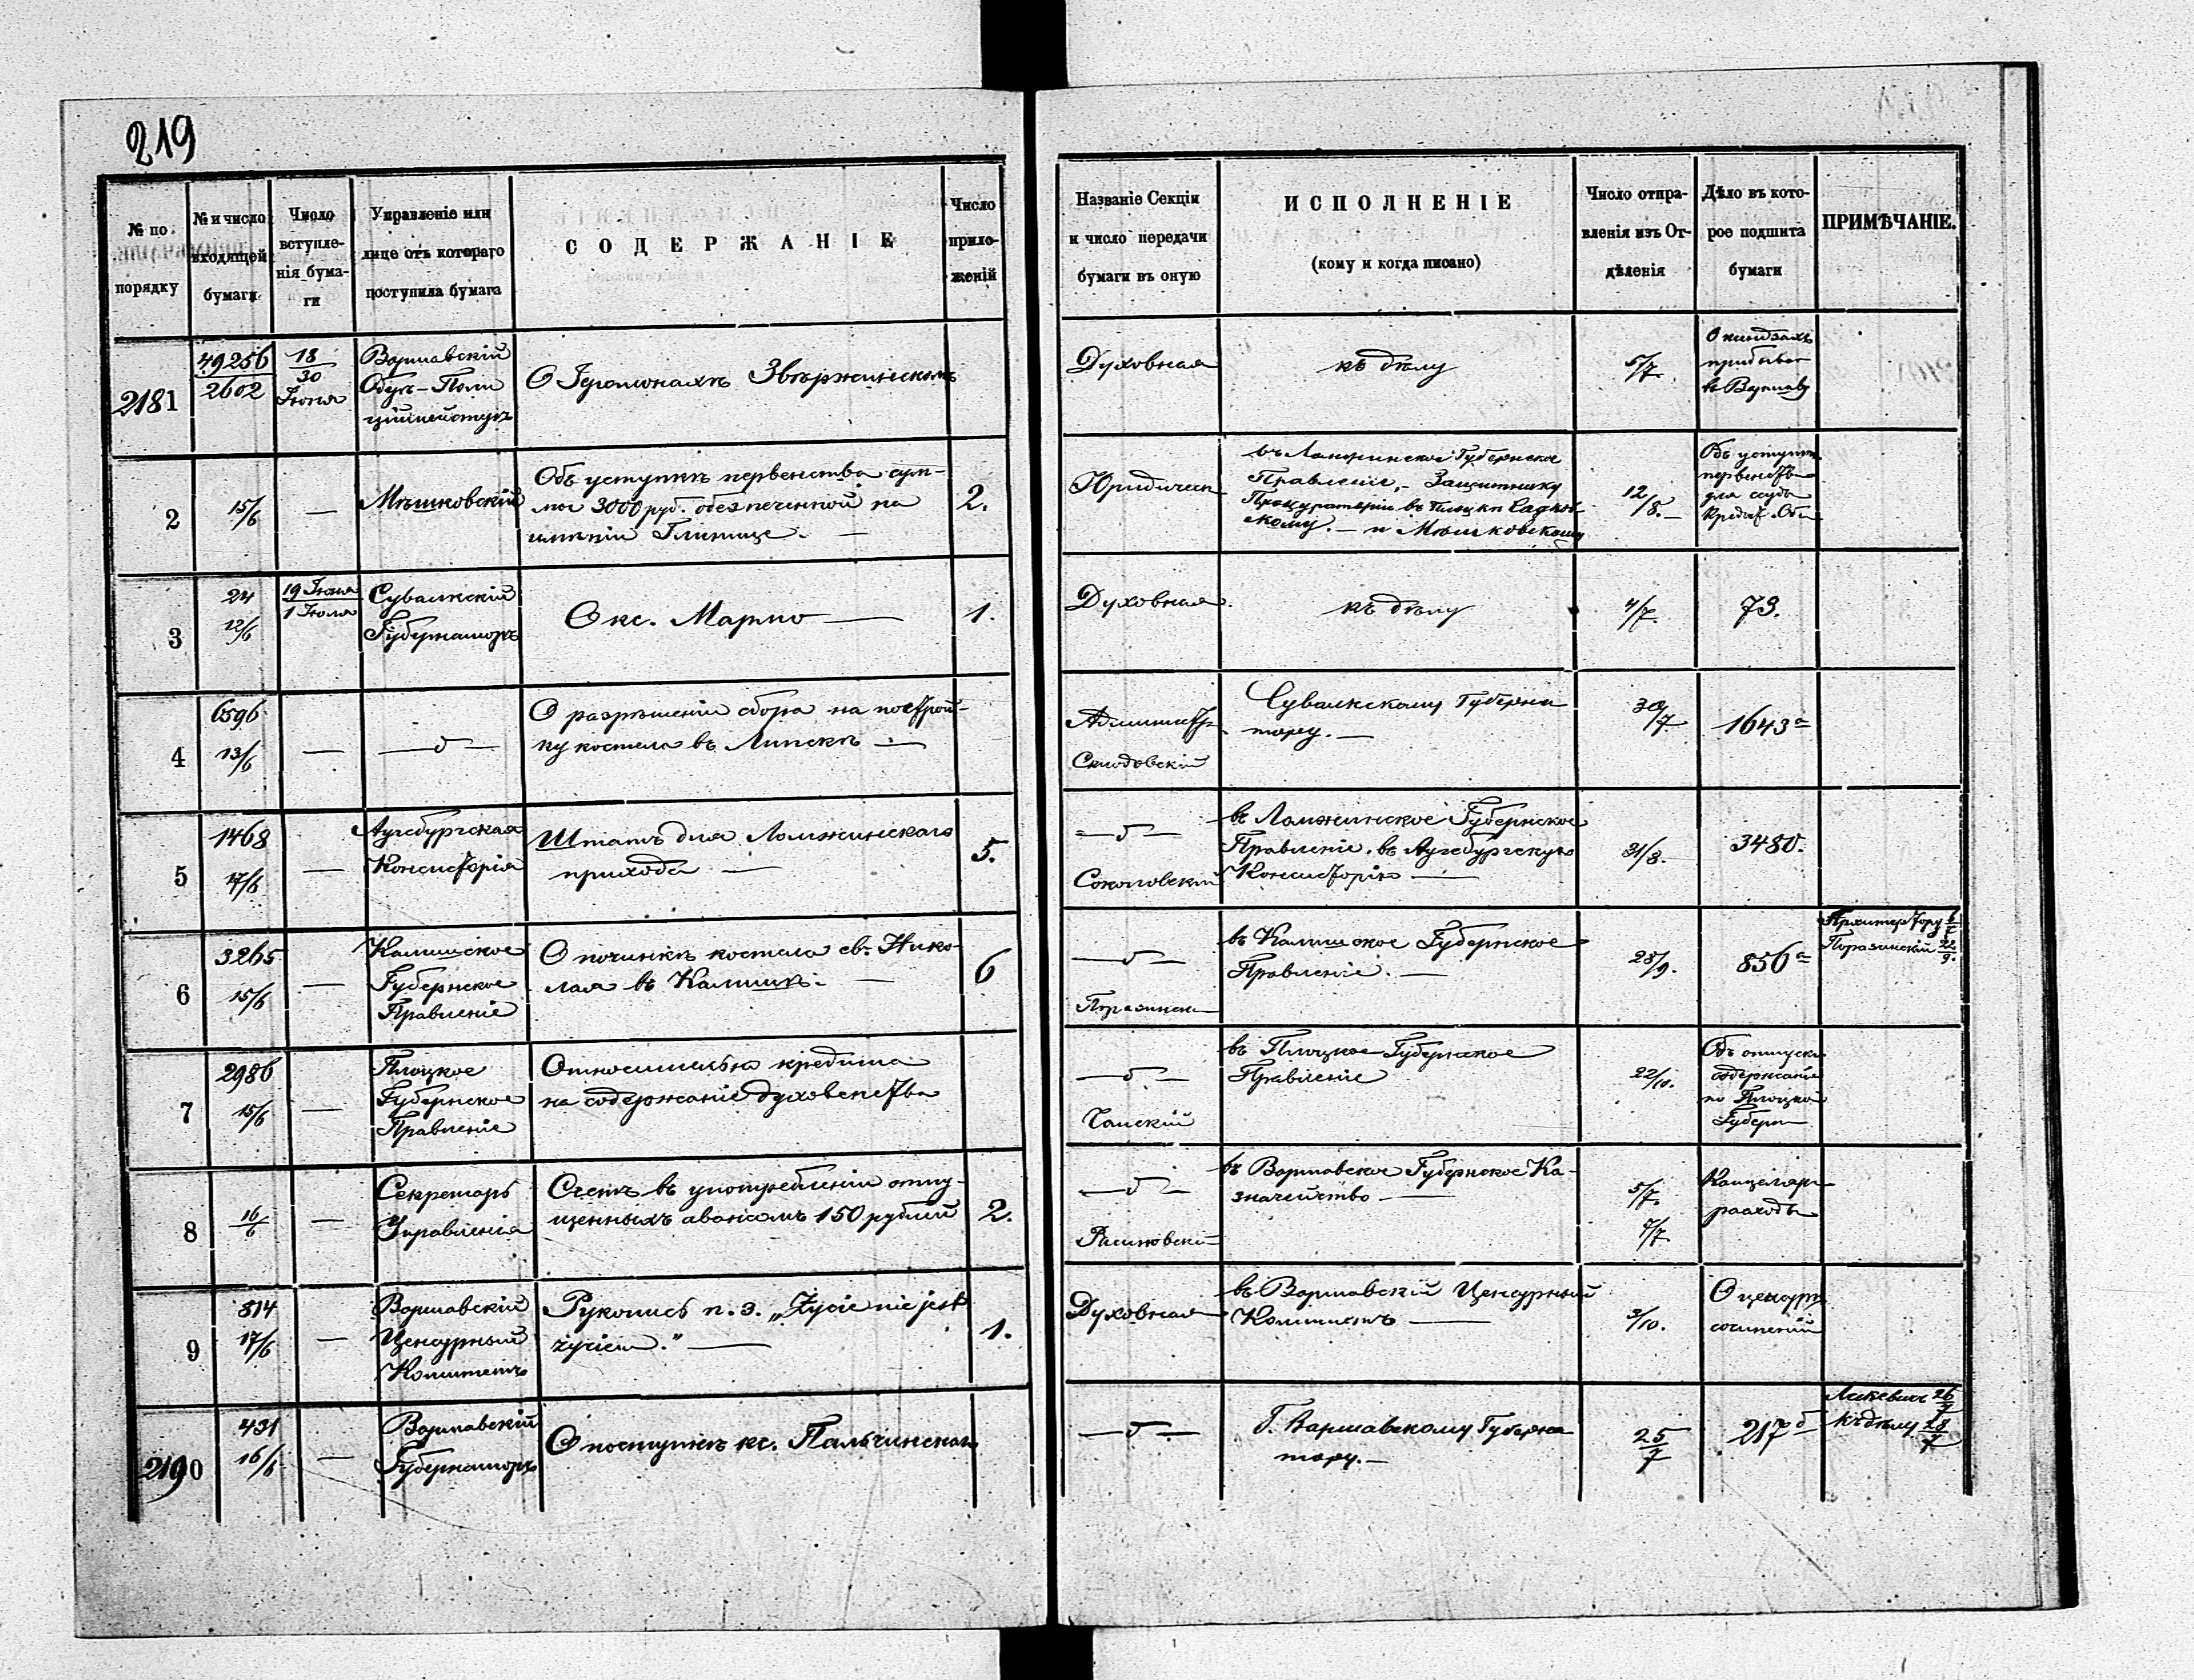 219
№ по порядку
№ и число входящей бумаги
Число вступленія бумаги
Управленіе или лице отъ котораго поступила бумага
СОДЕРЖАНІЕ
Число приложеній
Названіе Секціи и число передачи бумаги въ оную
ИСПОЛНЕНІЕ
(кому и когда писано)
Число отправленія изъ Отдѣленія
Дѣло въ которое подшита бумаги
ПРИМѢЧАНІЕ.
2181
49256
2602
18
30
Іюня
Варшавскій
Оберъ-Поли
ціймейстеръ
О Іеромонахѣ
Духовная
къ дѣлу
5/7
О ксендзахъ
прибывш
въ Варшаву
2
15/6
—
Мѣшковскій
Объ уступкѣ первенства сум-
мы 3000 руб. обезпеченной на
имѣніи Глинице. —
2.
Юридическ
въ Ломжинское Губернское
Правленіе, - Защитнику
Прокураторіи въ Плоцкѣ
скому. — и Мѣшковскому
12/8. —
Объ уступкѣ
первенства
для ссуды
Кредит. Общ
3
24
12/6
19 Іюня
1 Іюля
Сувалкскій
Губернаторъ
О кс. Марно —
1.
Духовная.
къ дѣлу
4/7.
73.
4
6596
13/6
—
— " —
О разрѣшеніи сбора на построй-
ку костела въ Липскѣ —
Администр.
Склодовскій
Сувалкскому Губерна
тору. —
30/7.
1643а
5
1468
17/6
—
Аугсбургская
Консисторія
Штатъ для Ломжинскаго
прихода —
5.
— " —
Соколовскій
въ Ломжинское Губернское
Правленіе. въ Аугсбургскую
Консисторію —
31/8.
3480.
6
3265
15/6
—
Калишское
Губернское
Правленіе
О починкѣ костела св. Нико-
лая въ Калишѣ. —
6
— " —
Поразинск
въ Калишское Губернское
Правленіе. —
28/9.
856а
Архитектору 6/7
Поразинскій 22/9.
7
2986
15/6
—
Плоцкое
Губернское
Правленіе
Относительно кредита
на содержаніе духовенства
— " —
въ Плоцкое Губернское
Правленіе
22/10.
Объ отпускѣ
содержанія
по Плоцкой
Губерн
8
16
6
—
Секретарь
Управленія
Счетъ въ употребленіи отпу-
щенныхъ авансомъ 150 рублей
2.
— " —
въ Варшавское Губернское Ка-
значейство —
5/7.
7/7.
Канцеляр
расходы
9
814
17/6
—
Варшавскій
Цензурный
Комитетъ
Рукопись п. з. „Życie nie jest
życiem." —
1.
Духовная
въ Варшавскій Цензурный
Комитетъ —
3/10.
О цензурѣ
сочиненій
2190
431
16/6
—
Варшавскій
Губернаторъ
О поступкѣ кс. Пальчинскаго
— " —
Г. Варшавскому Губерна
тору. —
25
7
217б
26/7
къ дѣлу 28/7